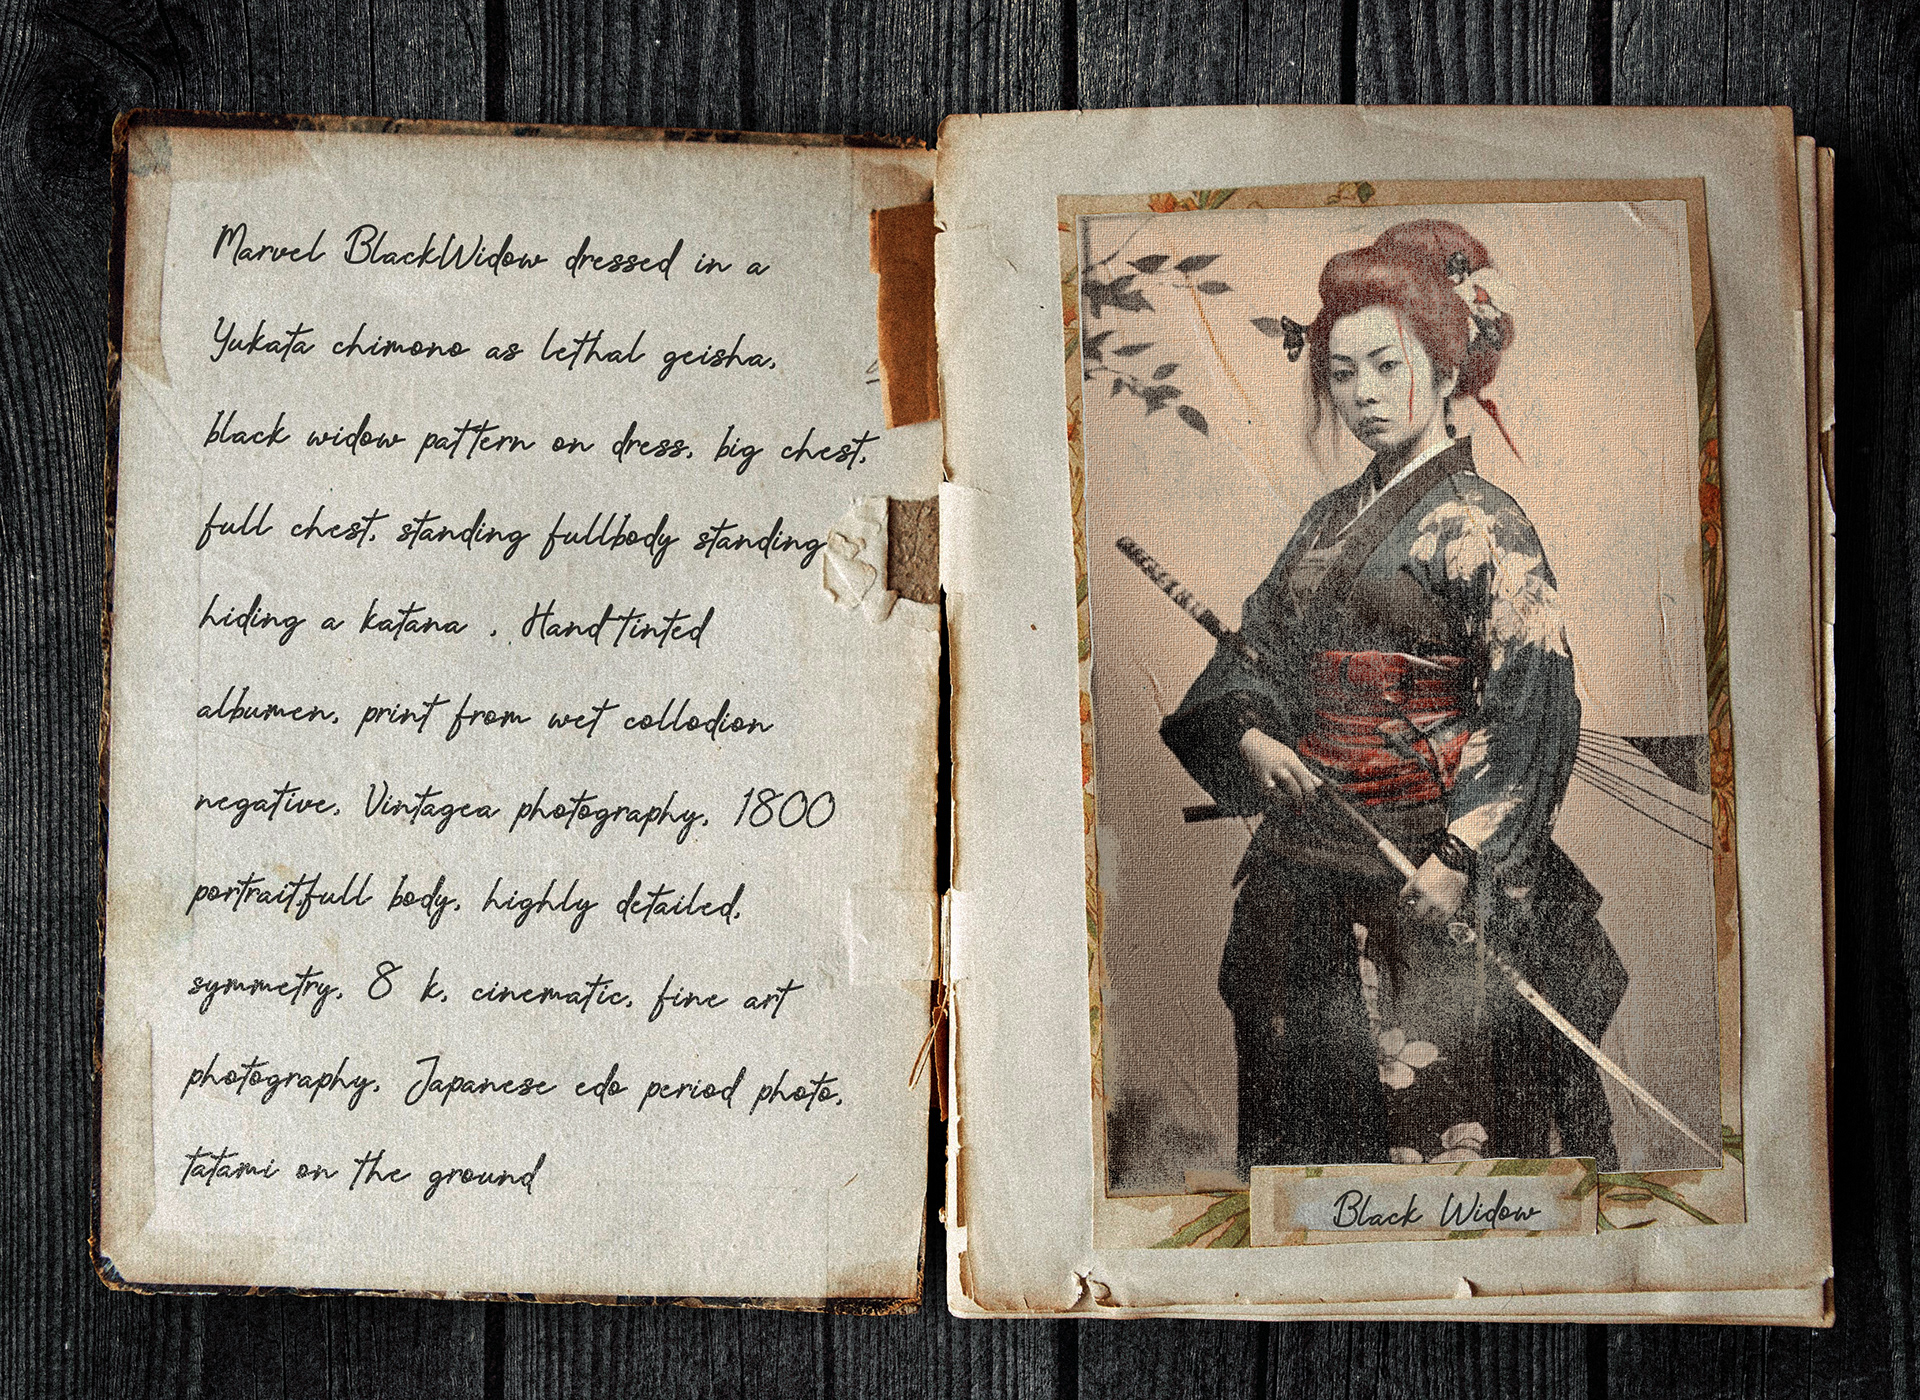 Marvel BlackWidow dressed in a
Yukata chimono as lethal geisha,
black widow pattern on dress, big chest,
full chest, standing fullbody standing
hiding a katana , . Hand tinted
albumen, print from wet collodion
negative, Vintagea photography, 1800
portrait,full body, highly detailed,
symmetry, 8 k, cinematic, fine art
photography, Japanese edo period photo,
tatami on the ground
Black Widow